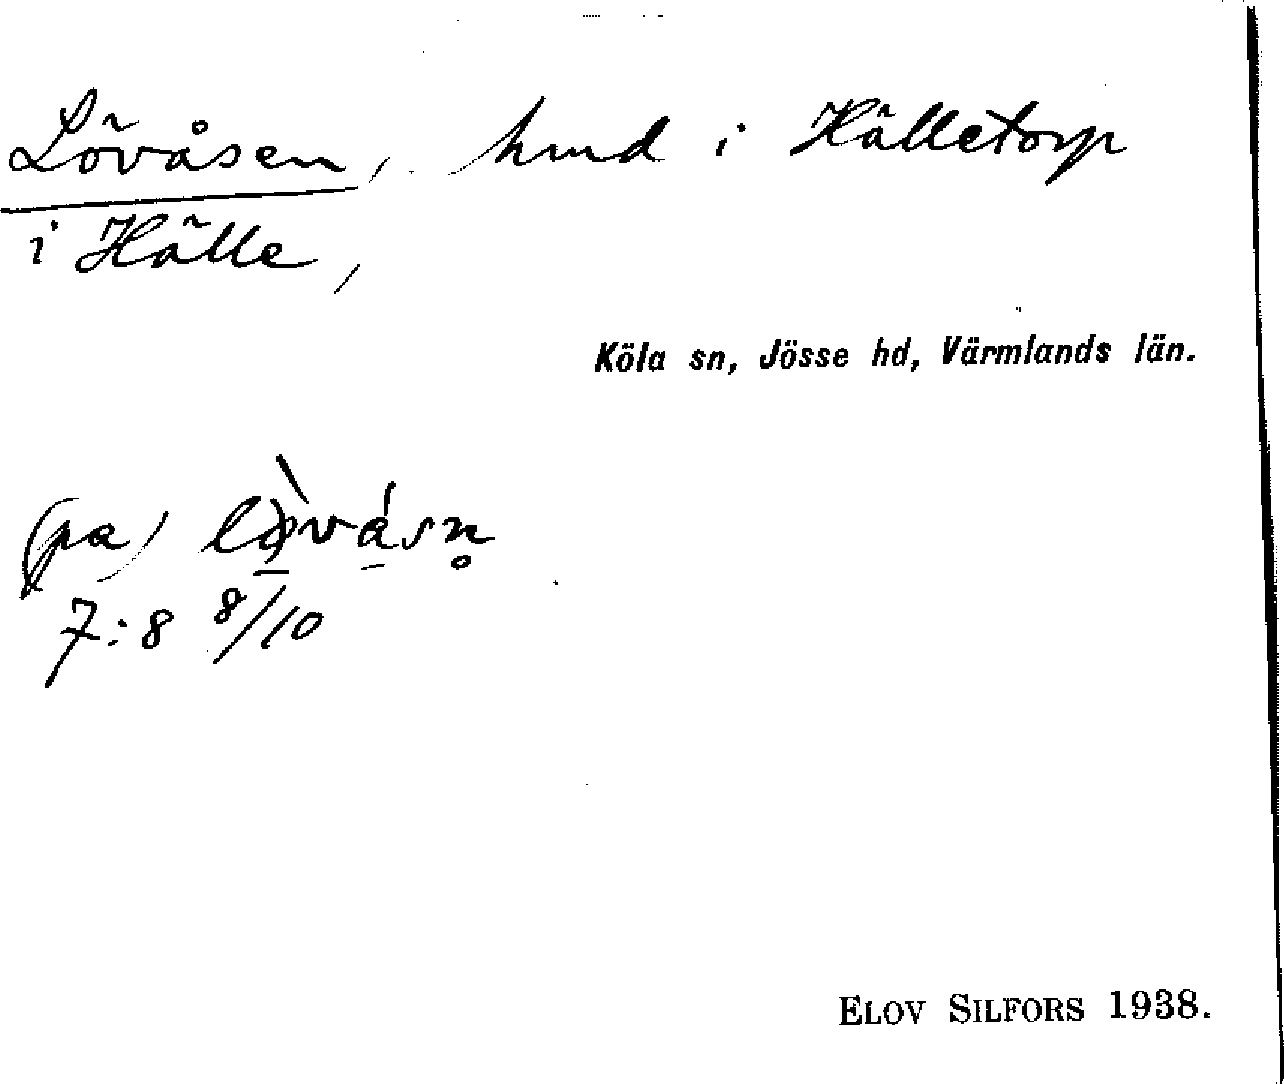 Lövåsen, hmd i Hälletorp
i Hälle,
Köla sn, Jösse hd, Värmlands län.
(pa)
7:8 8/10
ELOV SILFORS 1938.